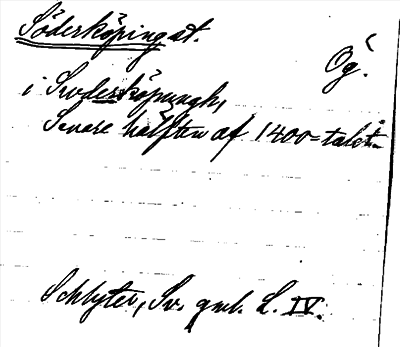 Söderköping st.
Ög.
i Suderköpungh,
Senare hälften af 1400-talet.
Schlyter, Sv. gml. L. IV.